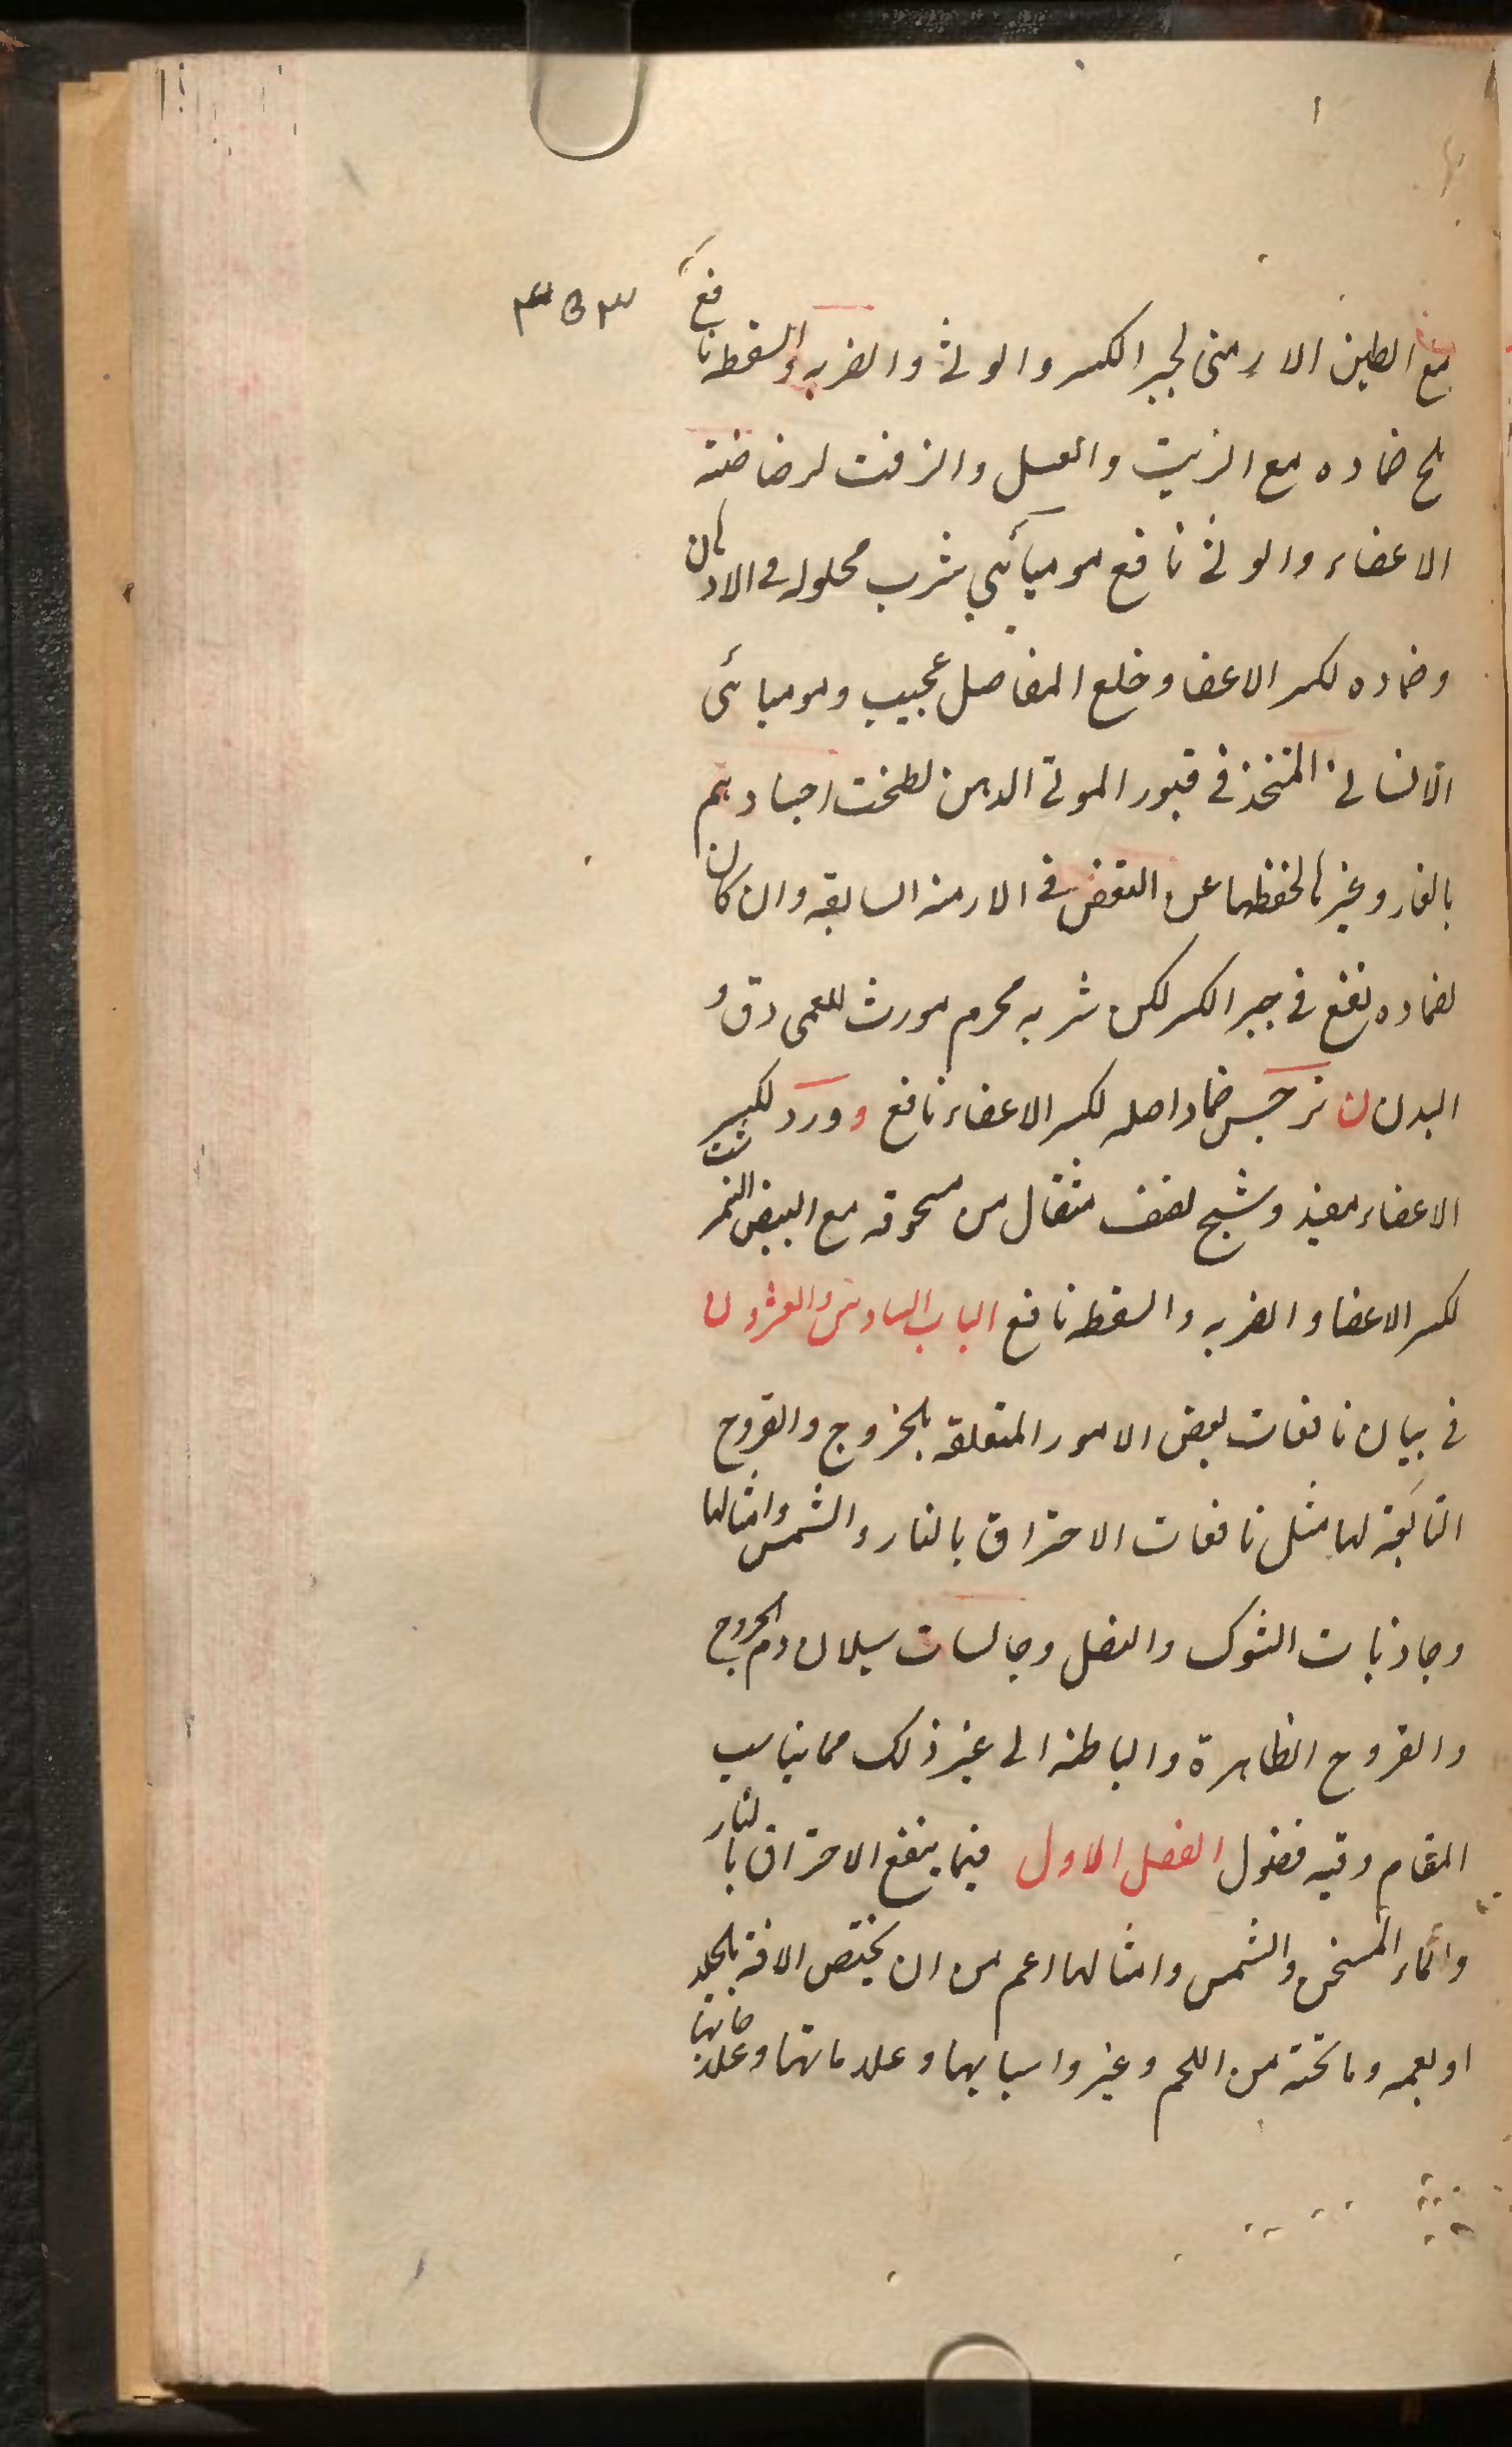 ٣٥٣
مع الطين الارمنى لجبر الكسر والوثى والضربه والسقطه نافع
ملح ضماده مع الزيت والعسل والزفت لرضاضته
الاعضاء والوثى نافع موميائى شرب محلوله فى الادهان
وضماده لكسر الاعضا وخلع المفاصل عجيب وموميائى
الانسانى المتخذ فى قبور الموتى الدهن لطخت اجسادهم
بالقار وغيرها لحفظها عن التعفن فى الازمنه السابقه وان كان
لضماده نفع فى جبر الكسر لكن شربه محرم مورث للعمى دق و
البدن ن نرجس ضماد اصله لكسر الاعضاء نافع و ورد لكسر
الاعضاء مفيد وشبح نصف مثقال من مسحوقه مع البيض النمرشت
لكسر الاعضا والضربه والسقطه نافع الباب السادس والعشرون
فى بيان نافعات بعض الامور المتعلقه بالجروح والقروح
التابعة لها مثل نافعات الاحتراق بالنار والشمس وامثالها
وجاذبات الشوك والنصل وحابسات سيلان دم الجروح
والقروح الظاهرة والباطنه الى غير ذلك مما يناسب
المقام وفيه فصول الفصل الاول فيما ينفع الاحتراق بالنار
والماء المسخن والشمس وامثالها اعم من ان يختص الافة بالجلد
او يعمه وما تحته من اللحم وغيره واسبابها وعلاماتها وعلاجاتها